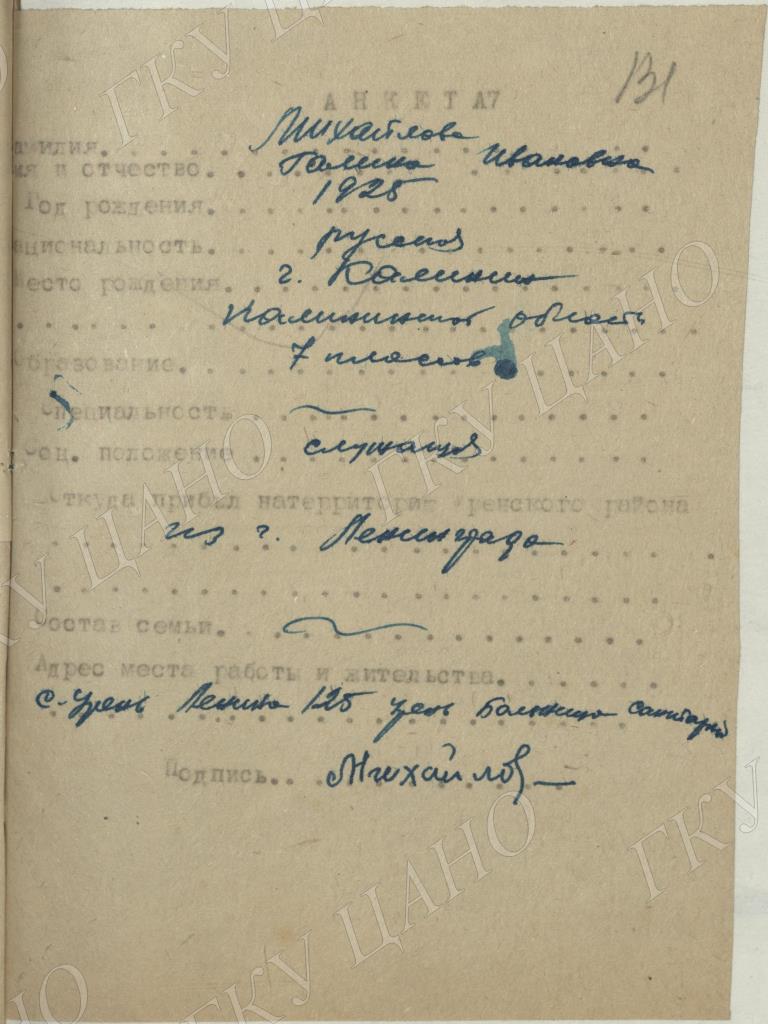 131
А Н К Е Т А
амилия. Михайлова
мя и отчество. Галина Ивановна
Год рождения. 1925
ациональность. русская
место рождения. г. Калинин
Калининской область
образование. 7 классов
специальность
соц. положение служащая
Откуда прибыл натерриторию Уренского района
из г. Ленинграда
Состав семьи.
Адрес места работы и жительства.
с. Урень Ленина 125 урен больница санитарка
Подпись.. Михайлов
ГКУ ЦАНО